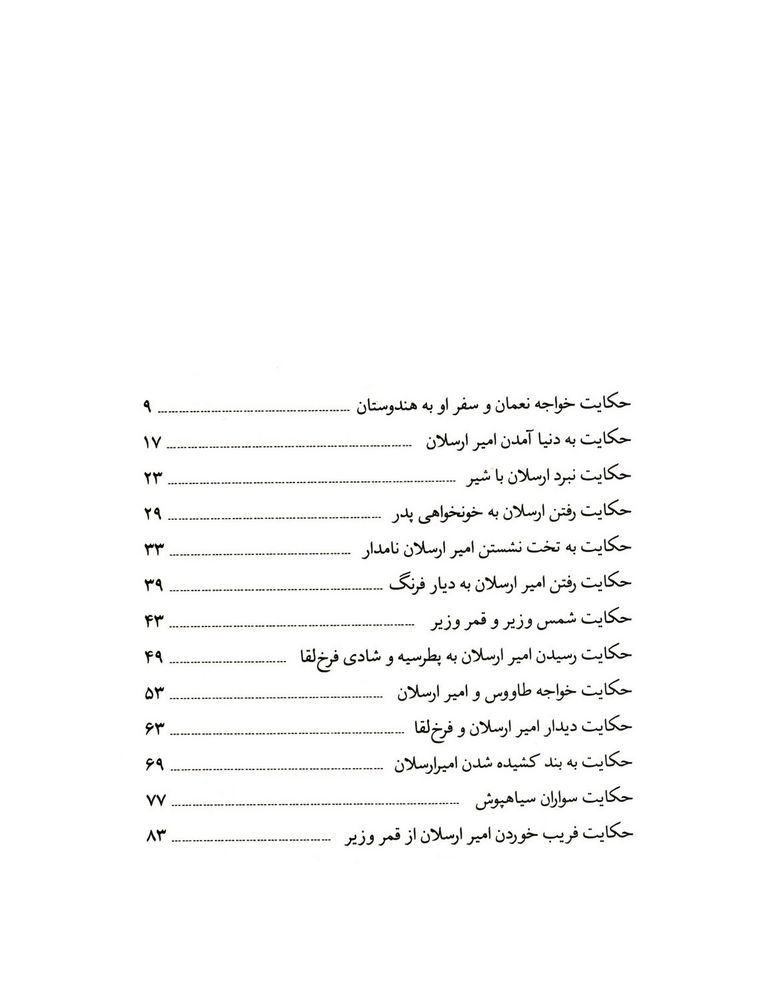 حکایت خواجه نعمان و سفر او به هندوستان ................ ۹
حکایت به دنیا آمدن امیر ارسلان ................ ۱۷
حکایت نبرد ارسلان با شیر ................ ۲۳
حکایت رفتن ارسلان به خونخواهی پدر ................ ۲۹
حکایت به تخت نشستن امیر ارسلان نامدار ................ ۳۳
حکایت رفتن امیر ارسلان به دیار فرنگ ................ ۳۹
حکایت شمس وزیر و قمر وزیر ................ ۴۳
حکایت رسیدن امیر ارسلان به پطرسیه و شادی فرخ‌لقا ................ ۴۹
حکایت خواجه طاووس و امیر ارسلان ................ ۵۳
حکایت دیدار امیر ارسلان و فرخ‌لقا ................ ۶۳
حکایت به بند کشیده شدن امیرارسلان ................ ۶۹
حکایت سواران سیاهپوش ................ ۷۷
حکایت فریب خوردن امیر ارسلان از قمر وزیر ................ ۸۳